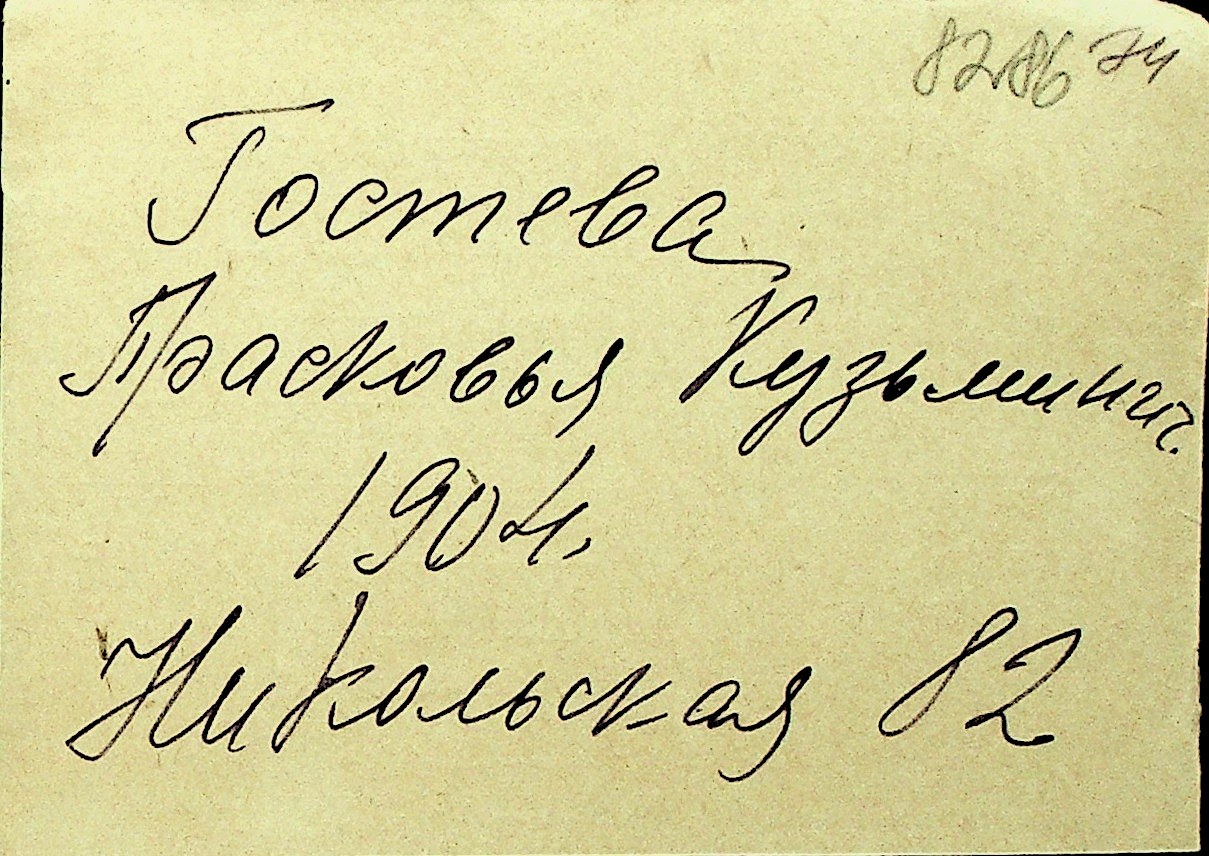 Гостева
Прасковья Кузьминич.
1904.
Никольская 82